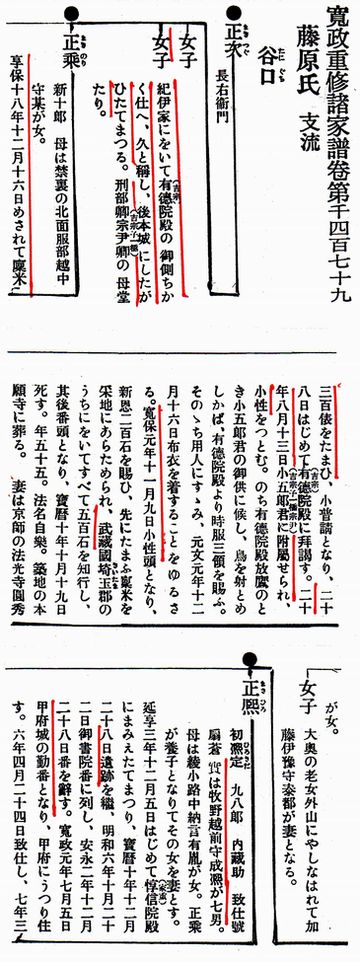 寛政重修諸家譜卷第千四百七十九
藤原氏 支流
谷口
たに ぐち
正次
まさ つぐ
長右衞門
女子
女子
紀伊家にをいて有德院殿の御側ちか
(吉宗)
く仕へ、久と稱し、後本城にしたが
ひたてまつる。刑部卿宗尹卿の母堂
(吉宗子一橋)
たり。
正乘
まさ のり
新十郎 母は禁裏の北面服部越中
守某が女。
享保十八年十二月十六日めされて廩米
三百俵をたまひ、小普請となり、二十
八日はじめて有德院殿に拜謁す。二十
(吉宗)
年八月十三日小五郎君に附屬せられ、
(吉宗子一橋宗尹)
小性をつとむ。のち有德院殿放鷹のと
き小五郎君の御供に候し、鳥を射とめ
しかば、有德院殿より時服三領を賜ふ。
そのゝち用人にすゝみ、元文元年十二
月十六日布衣を着することをゆるさ
る。寬保元年十一月九日小性頭となり、
新恩二百石を賜ひ、先にたまふ廩米を
采地にあらためられ、武藏國埼玉郡の
さいたま
うちにをいてすべて五百石を知行し、
其後番頭となり、寶曆十年十月十九日
死す。年五十五。法名自樂。築地の本
願寺に葬る。 妻は京師の法光寺圓秀
が女。
女子
大奧の老女外山にやしなはれて加
藤伊豫守泰都が妻となる。
正凞
まさ ひろ
初凞定 九八郎 內藏助 致仕號
ひろさだ
扇蒼 實は牧野越前守成凞が七男。
母は綾小路中納言有胤が女。正乘
が養子となりてその女を妻とす。
延享三年十二月五日はじめて惇信院殿
(家重)
にまみえたてまつり、寶曆十年十二月
二十八日遺跡を繼、明和六年十月二十
二日御書院番に列し、安永二年十二月
二十八日番を辭す。寬政元年七月五日
甲府城の勤番となり、甲府にうつり住
す。六年四月二十四日致仕し、七年三